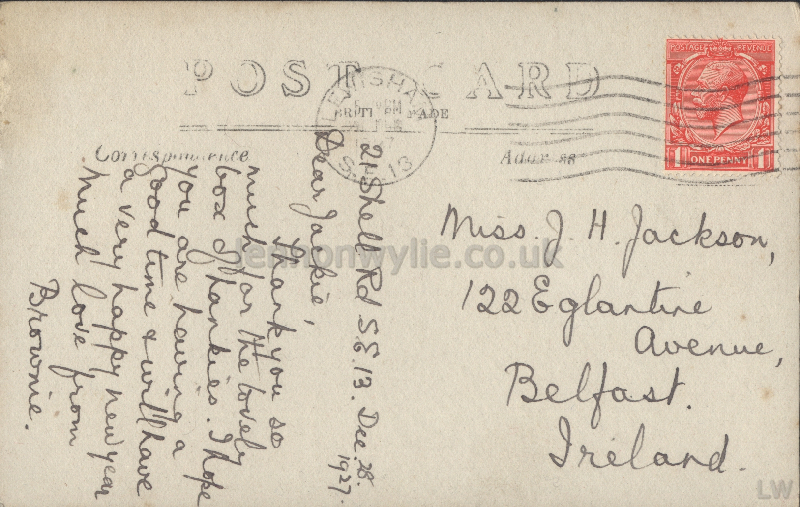 POST CARD
BRITISH MADE
Correspondence
Address
LEWISHAM
S.E.13
POSTAGE REVENUE
1 ONE PENNY 1
21 Shell Rd S.E.13. Dec. 28.
1927.
Dear Jackie,
Thank you so
much for the lovely
box of hankies. I hope
you are having a
good time & will have
a very happy new year
Much love from
Brownie.
Miss. J. H. Jackson,
122 Eglantine
Avenue,
Belfast.
Ireland.
lennonwylie.co.uk
LW